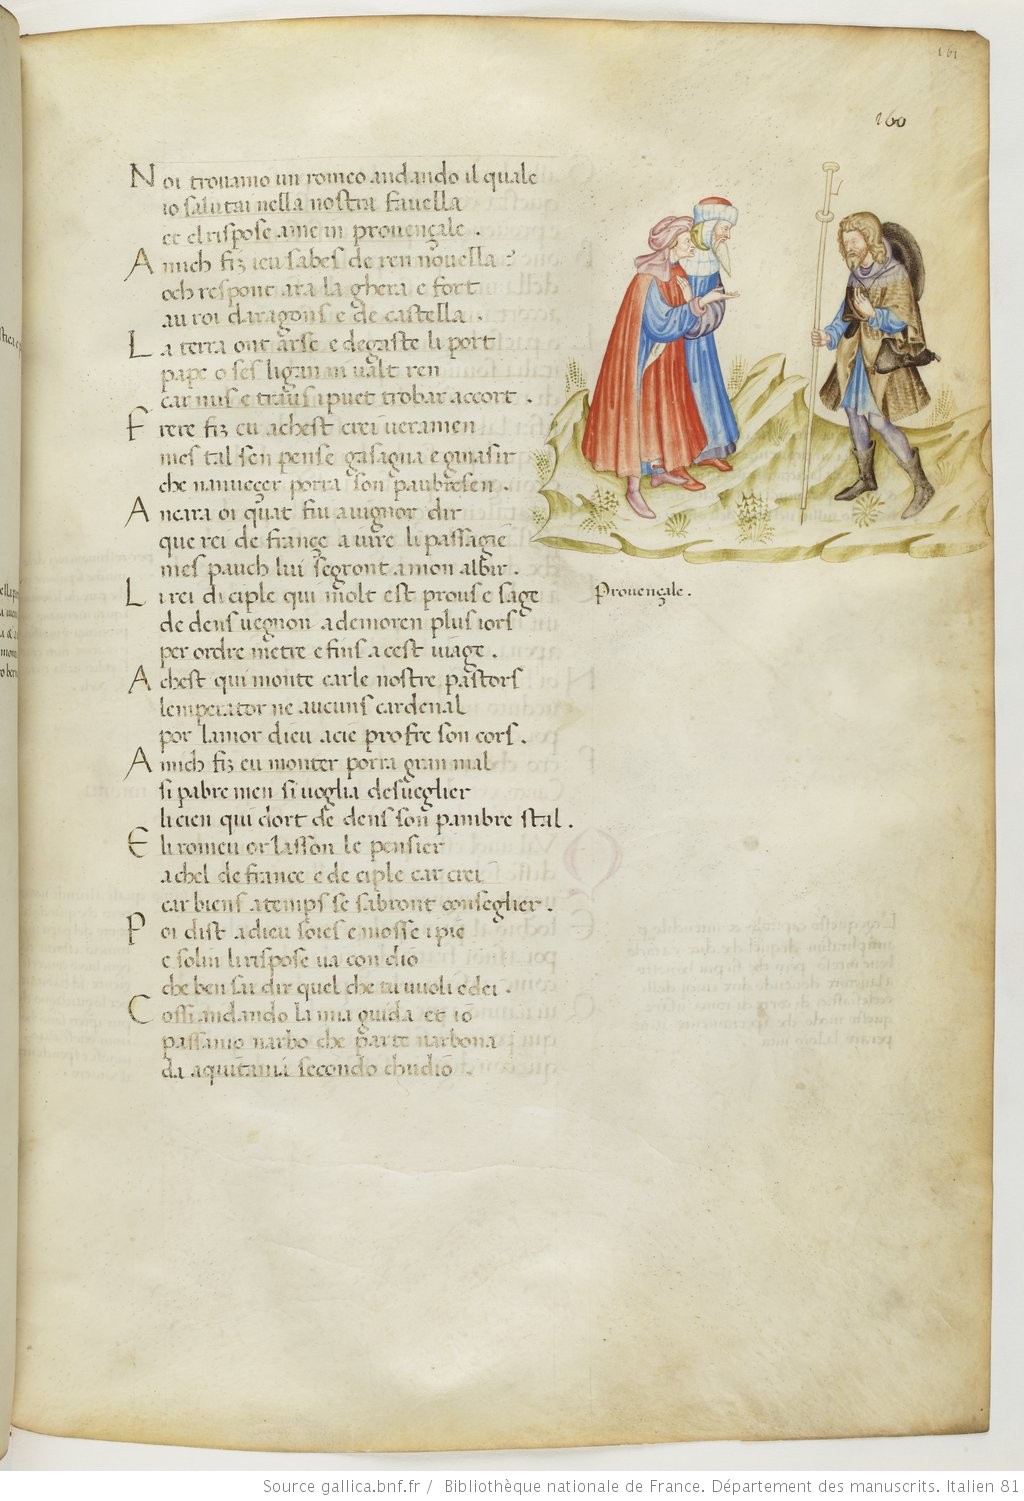 161
160
Noi trovamo un romeo andando il quale
io salutai nella nostra favella
et el rispose a me in provençale .
Amich fiz ieu sabes de ren novella ?
och respont ara la ghera e fort
au roi daragons e de castella .
La terra ont arse e degaste li port
pape o ses ligan in valt ren
car nus e traus i puet trobar accort .
Frere fiz eu achest crei veramen
mes tal sen pense gasagna e guiasir
che nanveçer porra son paubresen .
Ancara oi quat fiu avignor dir
que rei de françe a vire li passagiē
mes pauch lui segront a mon albir .
Li rei di ciple qui molt est prous e sage
de dens vegnon a demoren plus iors
per ordre metre e fins a cest viage .
Achest qui monte carle nostre pastors
lemperator ne aucuns cardenal
por lamor dieu a cie profre son cors .
Amich fiz eu monter porra gran mal
si pabre men si voglia desveglier
li cien qui dort de dens son paubre stal .
E li romeu or lasson le pensier
a chel de france e de ciple car crei
car biens a temps se sabront conseglier .
Poi dist a dieu soies e mosse i pie
e solin li rispose va con dio
che ben sai dir quel che tu vuoli e dei .
Cossi andando la mia guida et iō
passamo narbo che parte narbona
da aquitania secondo chudiō .
Provençale .
Source gallica.bnf.fr / Bibliothèque nationale de France. Département des manuscrits. Italien 81